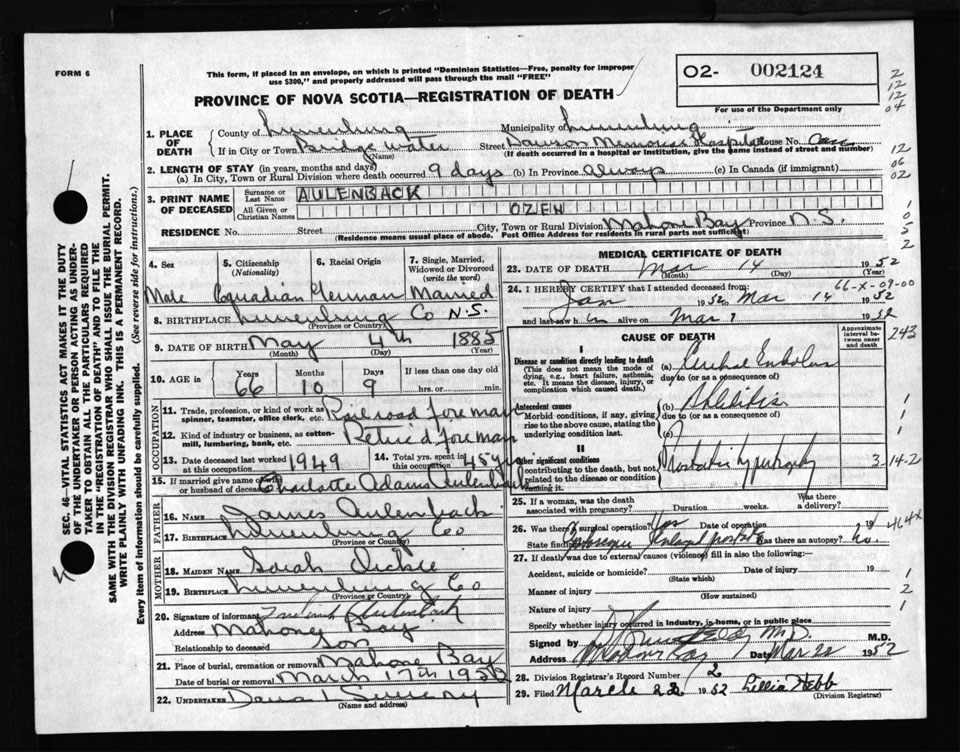 FORM 6
This form, if placed in an envelope, on which is printed "Dominion Statistics—Free, penalty for improper
use $300," and properly addressed will pass through the mail "FREE"
O2- 002124
PROVINCE OF NOVA SCOTIA—REGISTRATION OF DEATH
For use of the Department only
2
12
12
04
12
06
02
1
0
5
2
1. PLACE OF DEATH
County of Lunenburg Municipality of Lunenburg
If in City or Town Bridgewater Street Dawson Memorial Hospital House No.
(Name) (If death occurred in a hospital or institution, give the name instead of street and number)
2. LENGTH OF STAY (in years, months and days)
(a) In City, Town or Rural Division where death occurred 9 days (b) In Province always (c) In Canada (if immigrant)
3. PRINT NAME OF DECEASED
Surname or Last Name AULENBACK
All Given or Christian Names OZEN
RESIDENCE No. Street City, Town or Rural Division Mahone Bay Province N.S.
(Residence means usual place of abode. Post Office Address for residents in rural parts not sufficient)
4. Sex Male
5. Citizenship (Nationality) Canadian
6. Racial Origin German
7. Single, Married, Widowed or Divorced (write the word) Married
8. BIRTHPLACE Lunenburg Co N.S.
(Province or Country)
9. DATE OF BIRTH May 4th 1885
(Month) (Day) (Year)
10. AGE in Years 66 Months 10 Days 9 If less than one day old hrs. or min.
OCCUPATION
11. Trade, profession, or kind of work as spinner, teamster, office clerk, etc. Railroad foreman
12. Kind of industry or business, as cotton-mill, lumbering, bank, etc. Retired foreman
13. Date deceased last worked at this occupation 1949
14. Total yrs. spent in this occupation 45 yrs
15. If married give name of wife or husband of deceased Charlotte Adams Aulenback
FATHER
16. Name James Aulenback
17. Birthplace Lunenburg Co
(Province or Country)
MOTHER
18. Maiden Name Sarah
19. Birthplace Lunenburg Co
(Province or Country)
20. Signature of informant Aulenback
Address Mahone Bay
Relationship to deceased Son
21. Place of burial, cremation or removal Mahone Bay
Date of burial or removal March 17th 1952
22. Undertaker
(Name and address)
MEDICAL CERTIFICATE OF DEATH
23. DATE OF DEATH Mar 14 1952
(Month) (Day) (Year)
66-X-09-00
24. I HEREBY CERTIFY that I attended deceased from:
Jan 1952 to Mar 14 1952
and last saw h im alive on Mar 1952
CAUSE OF DEATH
Approximate interval between onset and death
243
I
Disease or condition directly leading to death
(This does not mean the mode of dying, e.g., heart failure, asthenia, etc. It means the disease, injury, or complication which caused death.)
(a) Cerebral Embolus
due to (or as a consequence of)
Antecedent causes
Morbid conditions, if any, giving rise to the above cause, stating the underlying condition last.
(b) Phlebitis
due to (or as a consequence of)
(c)
1
1
1
II
Other significant conditions
contributing to the death, but not related to the disease or condition causing it.
Prostatic hypertrophy
3-14-2
25. If a woman, was the death associated with pregnancy? Duration weeks. Was there a delivery?
26. Was there a surgical operation? Yes Date of operation
464x
State findings Was there an autopsy? no.
27. If death was due to external causes (violence) fill in also the following:
Accident, suicide or homicide? Date of injury 19
(State which)
Manner of injury
(How sustained)
Nature of injury
1
2
1
Specify whether injury occurred in industry, in home, or in public place
Signed by M.D.
Address Mahone Bay Date Mar 22 1952
28. Division Registrar's Record Number 12
29. Filed March 22 1952 Lillia Hebb
(Division Registrar)
SEC. 46—VITAL STATISTICS ACT MAKES IT THE DUTY
OF THE UNDERTAKER OR PERSON ACTING AS UNDER-
TAKER TO OBTAIN ALL THE PARTICULARS REQUIRED
IN THE "REGISTRATION OF DEATH" AND TO FILE THE
SAME WITH THE DIVISION REGISTRAR WHO SHALL ISSUE THE BURIAL PERMIT.
WRITE PLAINLY WITH UNFADING INK. THIS IS A PERMANENT RECORD.
Every item of information should be carefully supplied. (See reverse side for instructions.)